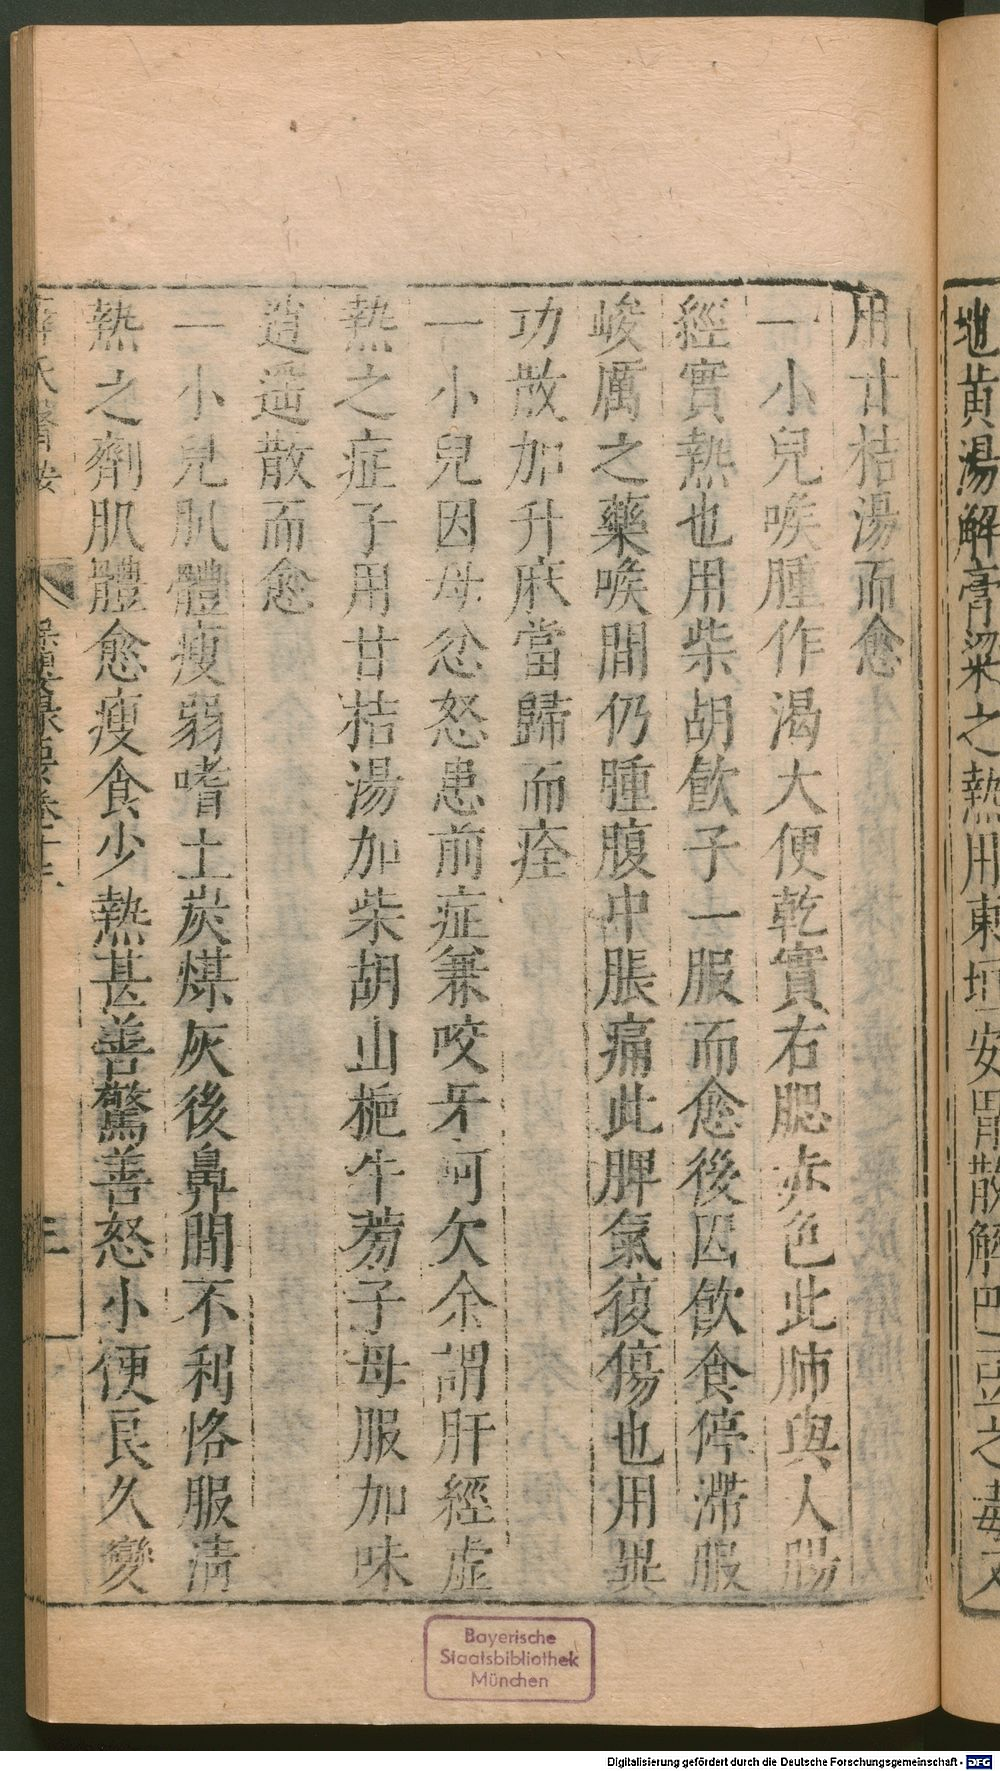 地黄湯解膏粱之熱用東垣安胃散解巴豆之毒又
用甘桔湯而愈
一小兒喉腫作渴大便乾實右腮赤色此肺與人腸
經實熱也用柴胡飲子一服而愈後因飲食停滯服
峻厲之藥喉間仍腫腹中脹痛此脾氣復傷也用異
功散加升麻當歸而痊
一小兒因母忿怒患前症兼咬牙呵欠余謂肝經虛
熱之症子用甘桔湯加柴胡山梔牛蒡子母服加味
逍遥散而愈
一小兒肌體瘦弱嗜土炭煤灰後鼻間不利恪服清
熱之劑肌體愈瘦食少熱甚善驚善怒小便良久變
薛氏醫按
保嬰撮要卷十三
三
Bayerische
Staatsbibliothek
München
Digitalisierung gefördert durch die Deutsche Forschungsgemeinschaft - DFG